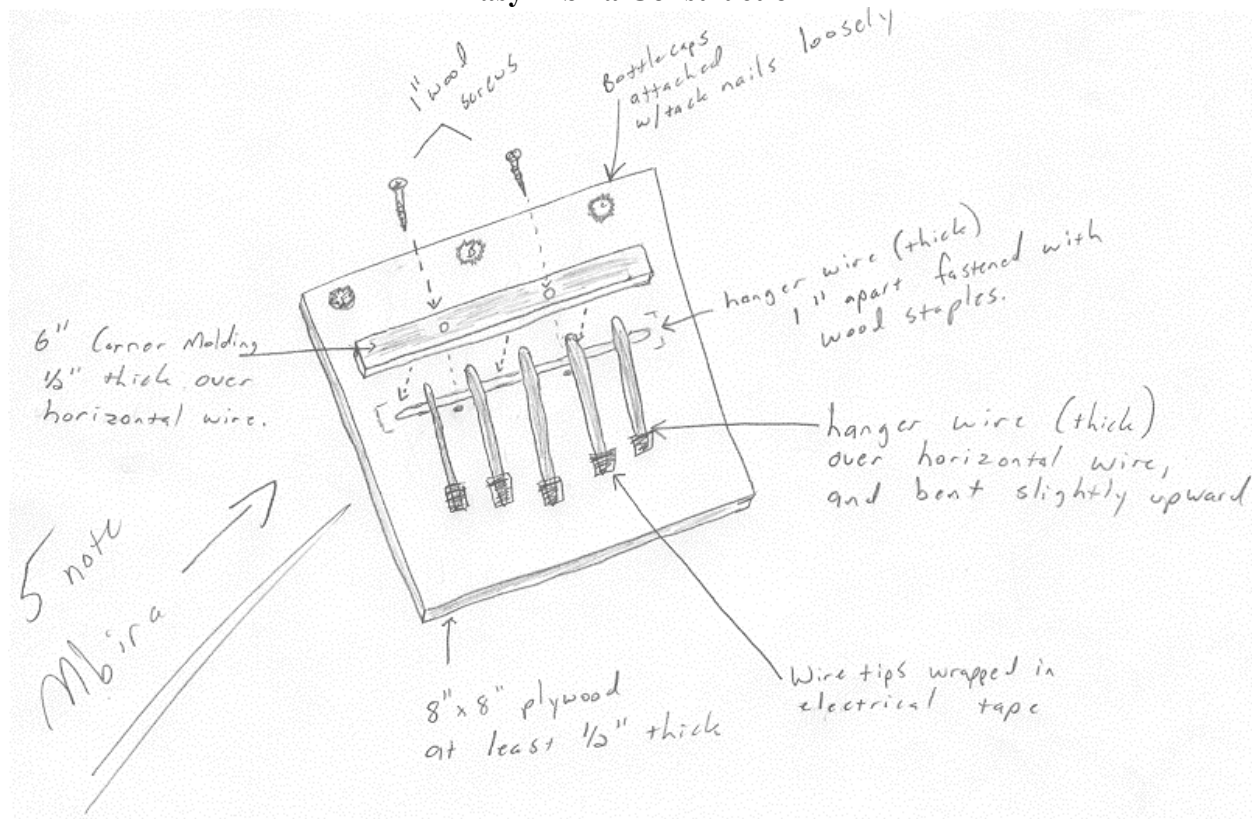 1" wood
screws
Bottlecaps
attached
w/tack nails loosely
hanger wire (thick)
1" apart fastened with
wood staples.
6" Corner Molding
1/2" thick over
horizontal wire.
hanger wire (thick)
over horizontal wire,
and bent slightly upward
5 note
Mbira
Wire tips wrapped in
electrical tape
8" x 8" plywood
at least 1/2" thick